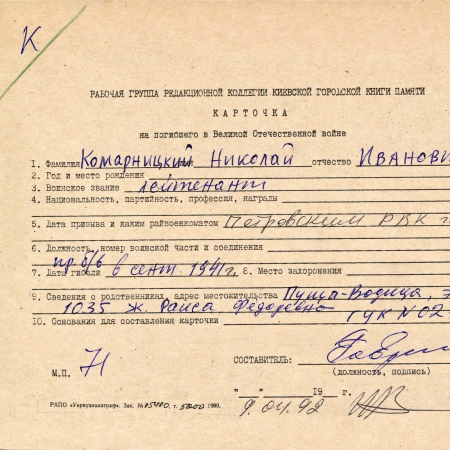 К
РАБОЧАЯ ГРУППА РЕДАКЦИОННОЙ КОЛЛЕГИИ КИЕВСКОЙ ГОРОДСКОЙ КНИГИ ПАМЯТИ
КАРТОЧКА
на погибшего в Великой Отечественной войне
1. Фамилия Комарницкий Николай отчество Иванови
2. Год и место рождения
3. Воинское звание лейтенант
4. Национальность, партийность, профессия, награды
5. Дата призыва и каким райвоенкоматом Петровским РВК г
6. Должность, номер воинской части и соединения
пр. б/в
7. Дата гибели в сент. 1941 г. 8. Место захоронения
9. Сведения о родственниках, адрес местожительства Пуща-Водица,
1035 ж. Раиса Федоровна
10. Основания для составления карточки ГУК N 02
СОСТАВИТЕЛЬ:
(должность, подпись)
М.П. 71
"__" 19__ г.
9.04.92
РАПО «Укрвузполиграф». Зак. № 05400. т. 5000 1990.